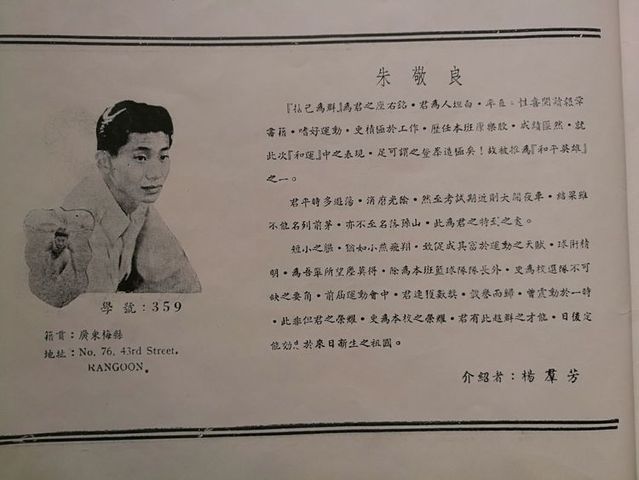 朱敬良
『捨己為群』為君之座右銘·君為人坦白·率直·性喜閱讀報章
書籍·嗜好運動·更積極於工作·歷任本班康樂股·成績匪然·就
此次『和運』中之表現·足可謂之登峯造極矣！故被推為『和平英雄』
之一。
君平時多遊蕩·消磨光陰·然至考試期近則大開夜車·結果雖
不能名列前茅·亦不至名落孫山·此為君之特長之處。
短小之軀·猶如小燕飛翔·致促成其富於運動之天賦·球術精
明·為吾輩所望塵莫得·除為本班籃球隊隊長外·更為校選隊不可
缺之要角·前屆運動會中·君連獲數獎·載譽而歸·曾震動於一時
·此非但君之榮耀·更為本校之榮耀·君有此超群之才能·日後定
能効於來日新生之祖國。
介紹者：楊羣芳
學號：359
籍貫：廣東梅縣
地址：No. 76, 43rd Street,
RANGOON.